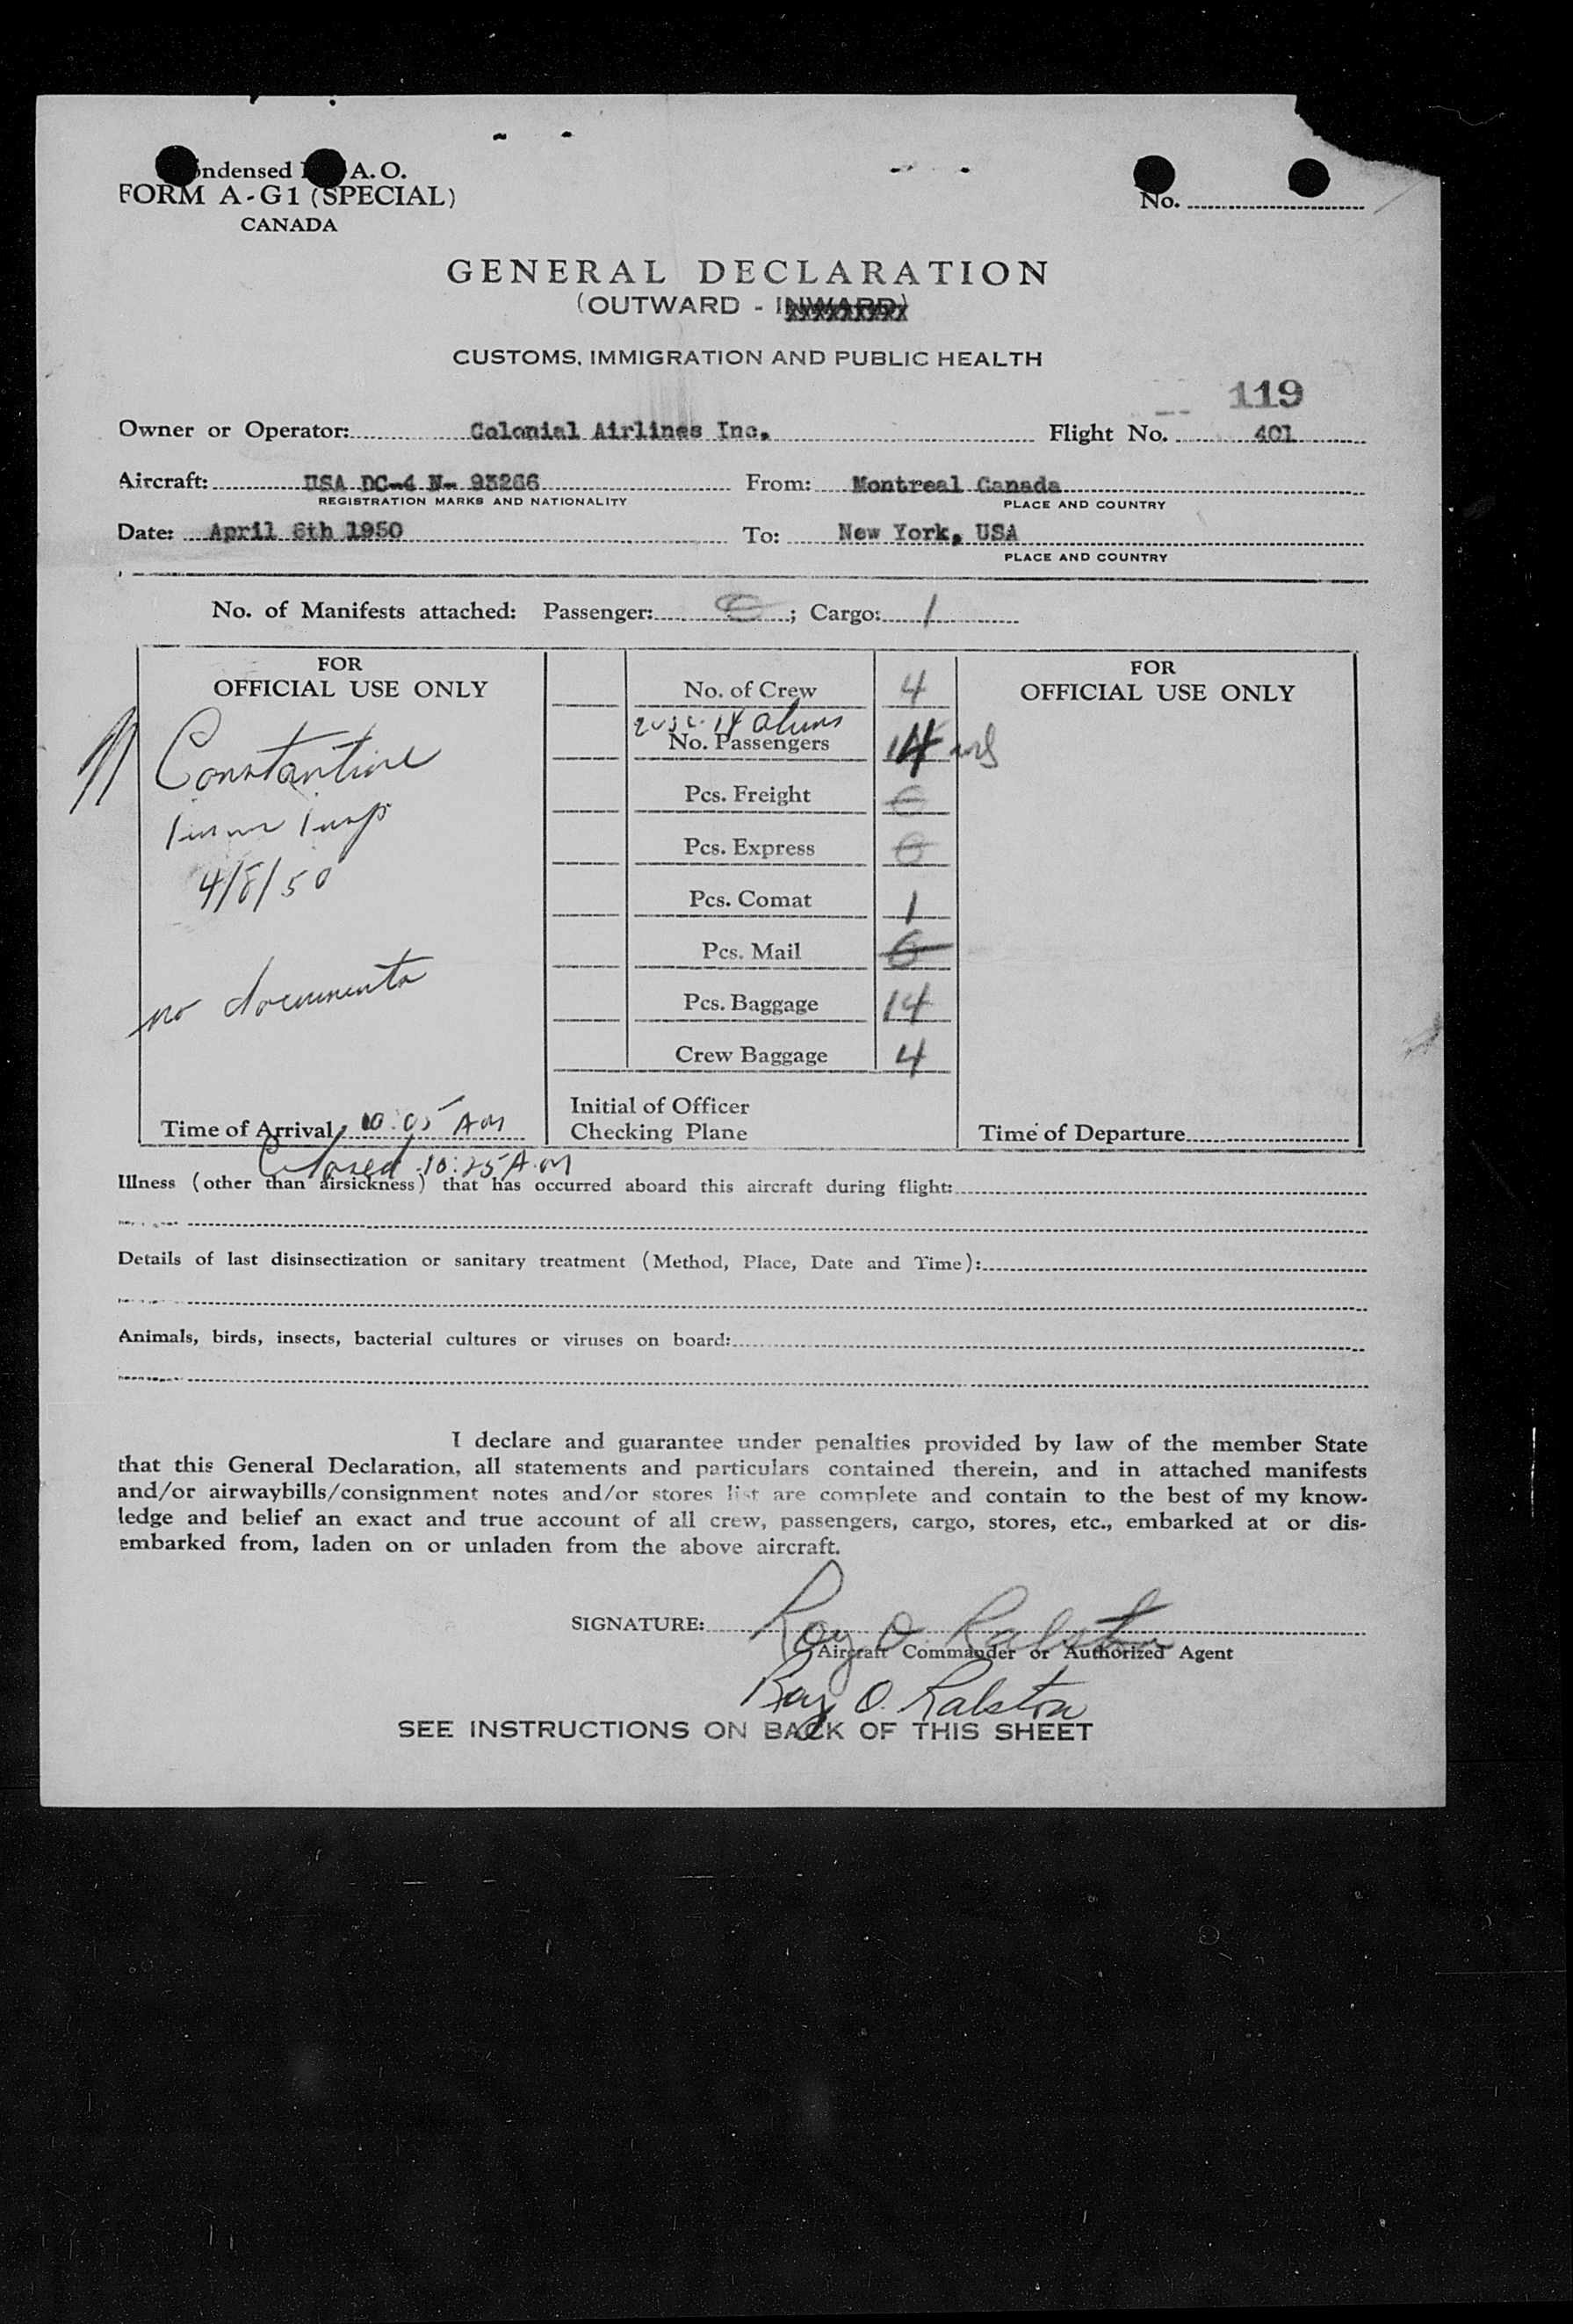 ondensed A. O.
FORM A-G1 (SPECIAL)
CANADA
No.
GENERAL DECLARATION
(OUTWARD - INWARD)
CUSTOMS, IMMIGRATION AND PUBLIC HEALTH
119
Owner or Operator: Colonial Airlines Inc. Flight No. 401
Aircraft: USA DC-4 N- 93266 From: Montreal Canada
REGISTRATION MARKS AND NATIONALITY PLACE AND COUNTRY
Date: April 6th 1950 To: New York, USA
PLACE AND COUNTRY
No. of Manifests attached: Passenger: 0; Cargo: 1
FOR
OFFICIAL USE ONLY
Constantine
4/8/50
no documents
Time of Arrival 10:05 AM
Closed 10:25 A.M
No. of Crew 4
14 aliens
No. Passengers 14
Pcs. Freight 0
Pcs. Express 0
Pcs. Comat 1
Pcs. Mail 0
Pcs. Baggage 14
Crew Baggage 4
Initial of Officer
Checking Plane
FOR
OFFICIAL USE ONLY
Time of Departure
Illness (other than airsickness) that has occurred aboard this aircraft during flight:
Details of last disinsectization or sanitary treatment (Method, Place, Date and Time):
Animals, birds, insects, bacterial cultures or viruses on board:
I declare and guarantee under penalties provided by law of the member State
that this General Declaration, all statements and particulars contained therein, and in attached manifests
and/or airwaybills/consignment notes and/or stores list are complete and contain to the best of my know-
ledge and belief an exact and true account of all crew, passengers, cargo, stores, etc., embarked at or dis-
embarked from, laden on or unladen from the above aircraft.
SIGNATURE: Roy O. Ralston
Aircraft Commander or Authorized Agent
Roy O. Ralston
SEE INSTRUCTIONS ON BACK OF THIS SHEET